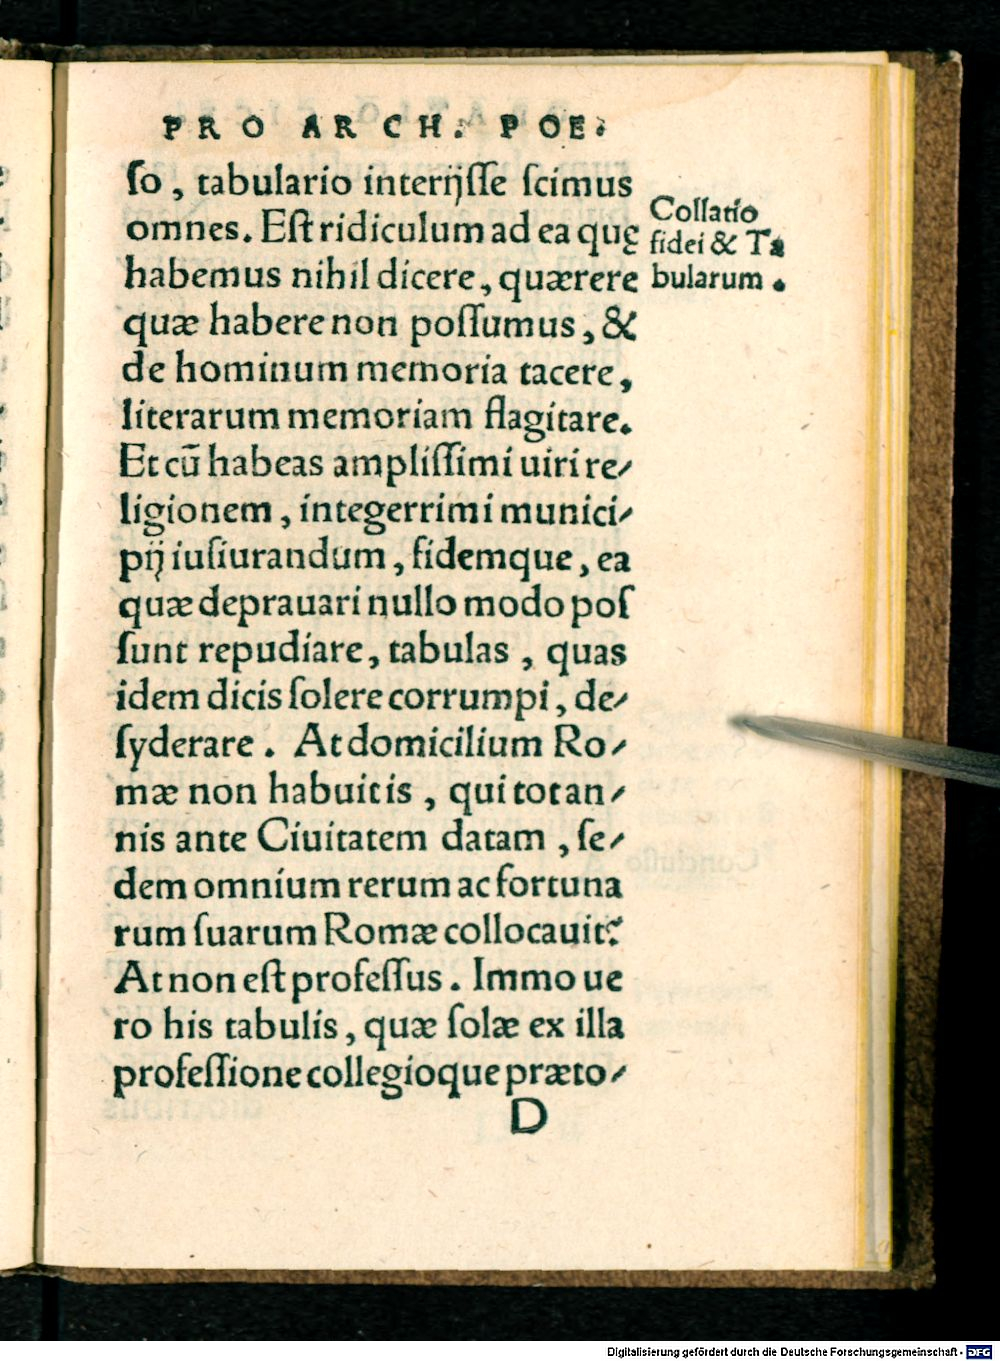 PRO ARCH. POE.
ſo, tabulario interijſſe ſcimus
omnes. Eſt ridiculum ad ea quę
habemus nihil dicere, quærere
quæ habere non poſſumus, &
de hominum memoria tacere,
literarum memoriam flagitare.
Et cū habeas ampliſſimi uiri re/
ligionem, integerrimi munici/
pij iuſiurandum, fidemque, ea
quæ deprauari nullo modo poſ
ſunt repudiare, tabulas, quas
idem dicis ſolere corrumpi, de/
ſyderare. At domicilium Ro/
mæ non habuit is, qui tot an/
nis ante Ciuitatem datam, ſe/
dem omnium rerum ac fortuna
rum ſuarum Romæ collocauit?
At non eſt profeſſus. Immo ue
ro his tabulis, quæ ſolæ ex illa
profeſſione collegioque præto/
D
Collatio
fidei & Ta
bularum.
Digitalisierung gefördert durch die Deutsche Forschungsgemeinschaft - DFG